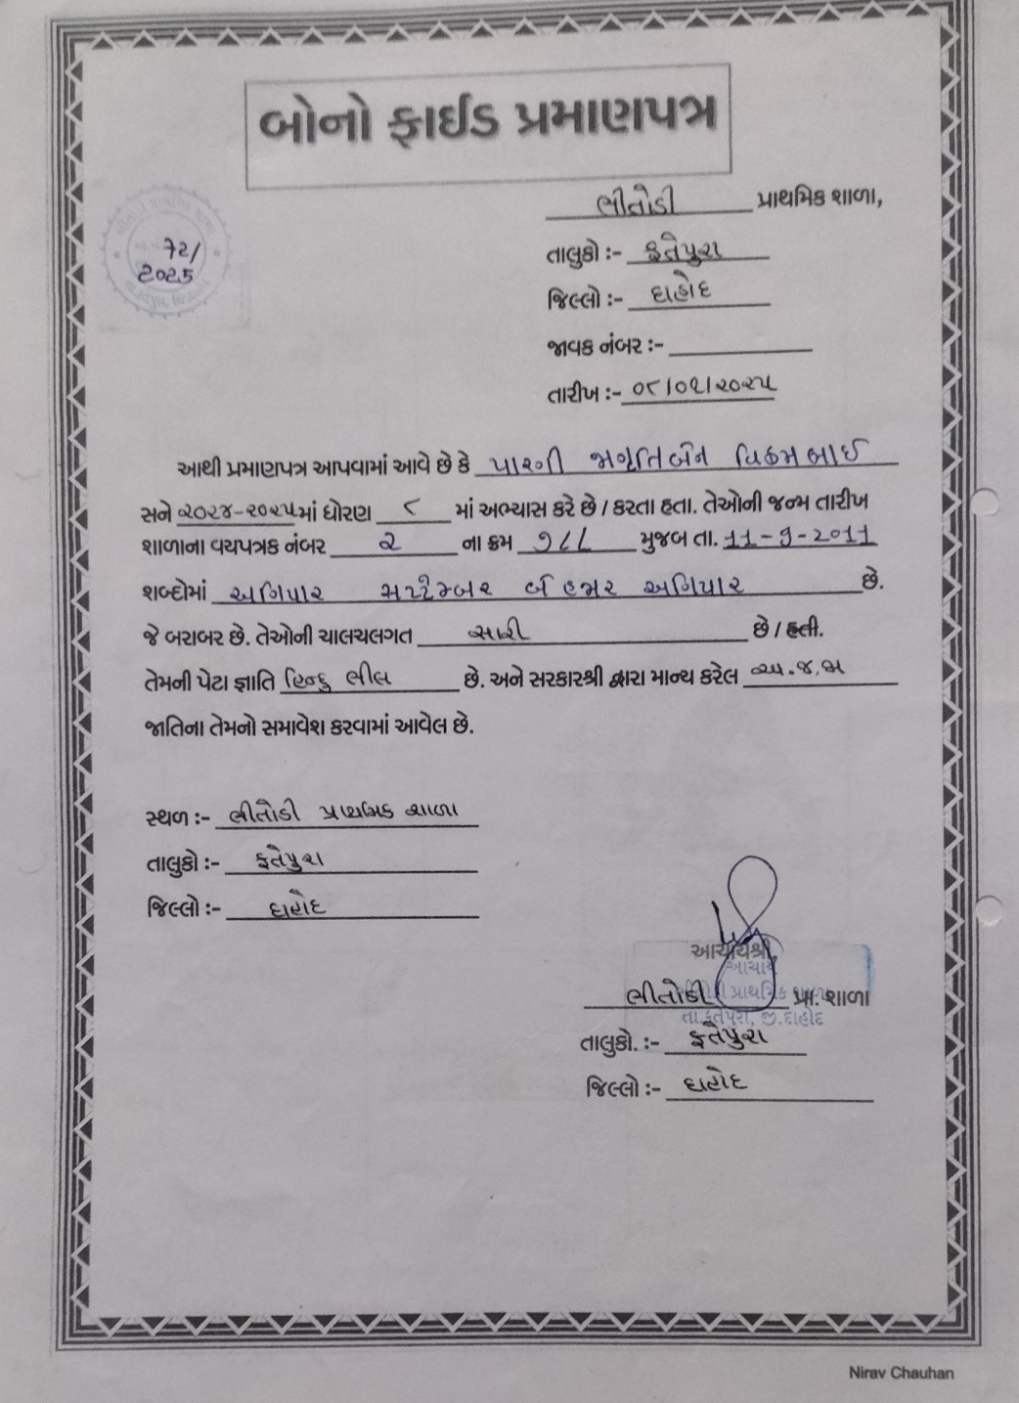 બોનો ફાઈડ પ્રમાણપત્ર
ભીતોડી પ્રાથમિક શાળા,
72/
2025
તાલુકો :- ફતેપુરા
જિલ્લો :- દાહોદ
જાવક નંબર :-
તારીખ :- ૦૮/૦૧/૨૦૨૫
આથી પ્રમાણપત્ર આપવામાં આવે છે કે પારગી જાગૃતિબેન વિક્રમભાઈ
સને ૨૦૨૪-૨૦૨૫માં ધોરણ ૮ માં અભ્યાસ કરે છે / કરતા હતા. તેઓની જન્મ તારીખ
શાળાના વયપત્રક નંબર ૨ ના ક્રમ ૭૮૮ મુજબ તા. 11-9-2011
શબ્દોમાં અગિયાર સપ્ટેમ્બર બે હજાર અગિયાર છે.
જે બરાબર છે. તેઓની ચાલચલગત સારી છે / હતી.
તેમની પેટા જ્ઞાતિ હિન્દુ ભીલ છે. અને સરકારશ્રી દ્વારા માન્ય કરેલ અ.જ.જા
જાતિના તેમનો સમાવેશ કરવામાં આવેલ છે.
સ્થળ :- ભીતોડી પ્રાથમિક શાળા
તાલુકો :- ફતેપુરા
જિલ્લો :- દાહોદ
આચાર્યશ્રી,
આચાર્ય
ભીતોડી પ્રા. શાળા
પ્રાથમિક શાળા
તા.ફતેપુરા, જી.દાહોદ
તાલુકો. :- ફતેપુરા
જિલ્લો :- દાહોદ
Nirav Chauhan